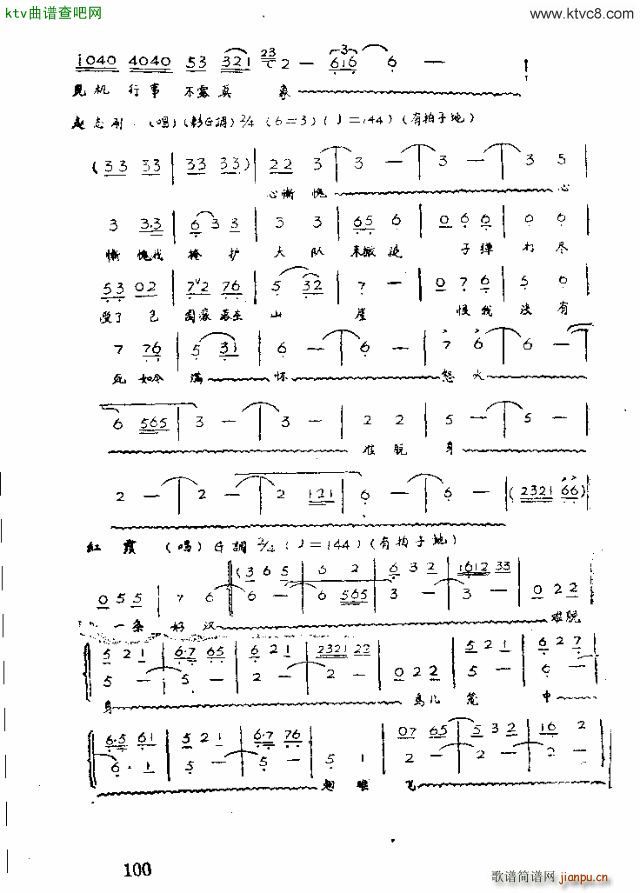 ktv曲谱查吧网 www.ktvc8.com
i040 4040 53 321 23 2 — 616 6 —
见机 行事 不露真 象
赵志刚 (唱) 2/4 (6=3) (♩=144) (有拍子地)
(33 33 | 33 33) | 22 3 | 3 — | 3 — | 3 5
心惭愧 心
3 3·3 | 6 3 3 | 3 3 | 65 6 | 0 6 6 | 6 6
惭 愧我 掩 护 大 队 来撤退 子弹 打尽
53 02 | 7 2 76 | 5 32 | 7 — | 0 7 6 | 5 6
受了 山 崖 恨我 没有
7 76 | 5 31 | 6 — | 6 — | 7 6 | 6 —
死 如今 满 怀 怒火
6 565 | 3 — | 3 — | 2 2 | 5 — | 5 —
难脱 身
2 — | 2 — | 2 121 | 6 — | 6 — | (2321 66)
红霞 (唱) G调 2/4 (♩=144) (有拍子地)
(3 6 5 | 6 2 | 6 3 2 | 1612 33
0 5 5 | 7 6 | 6 — | 6 565 | 3 — | 3 — | 0 2 2
一条 好 汉 难脱
5 2 1 | 6·7 65 | 6 2 1 | 2321 22 | 5 2 1 | 6 2 7
5 — | 5 — | 2 — | 2 — | 0 2 2 | 5 — | 6 —
身 鸟儿 笼 中
6·5 61 | 5 2 1 | 6·7 76 | 07 65 | 5 3 2 | 16 2
6·1 | 5 — | 5 — | 5 1 | 2 — | 2 — | 2 —
翅 难 飞
100
歌谱简谱网
jianpu.cn